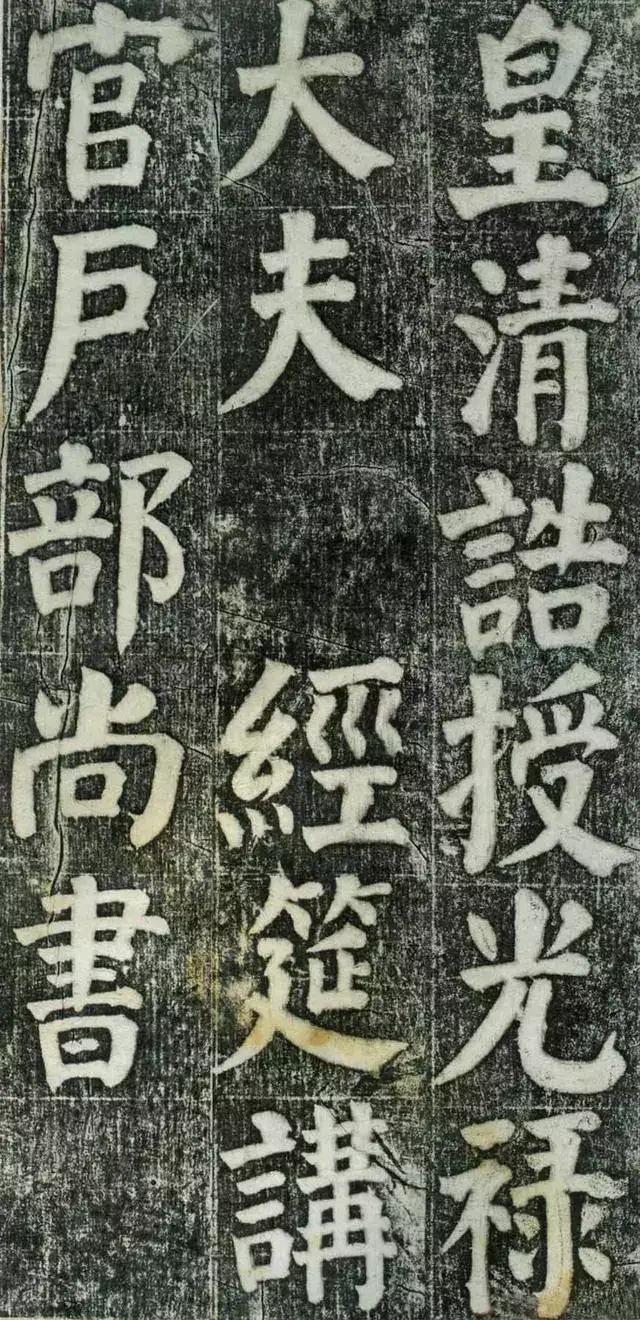 皇清誥授光禄
大夫　經筵講
官戶部尚書